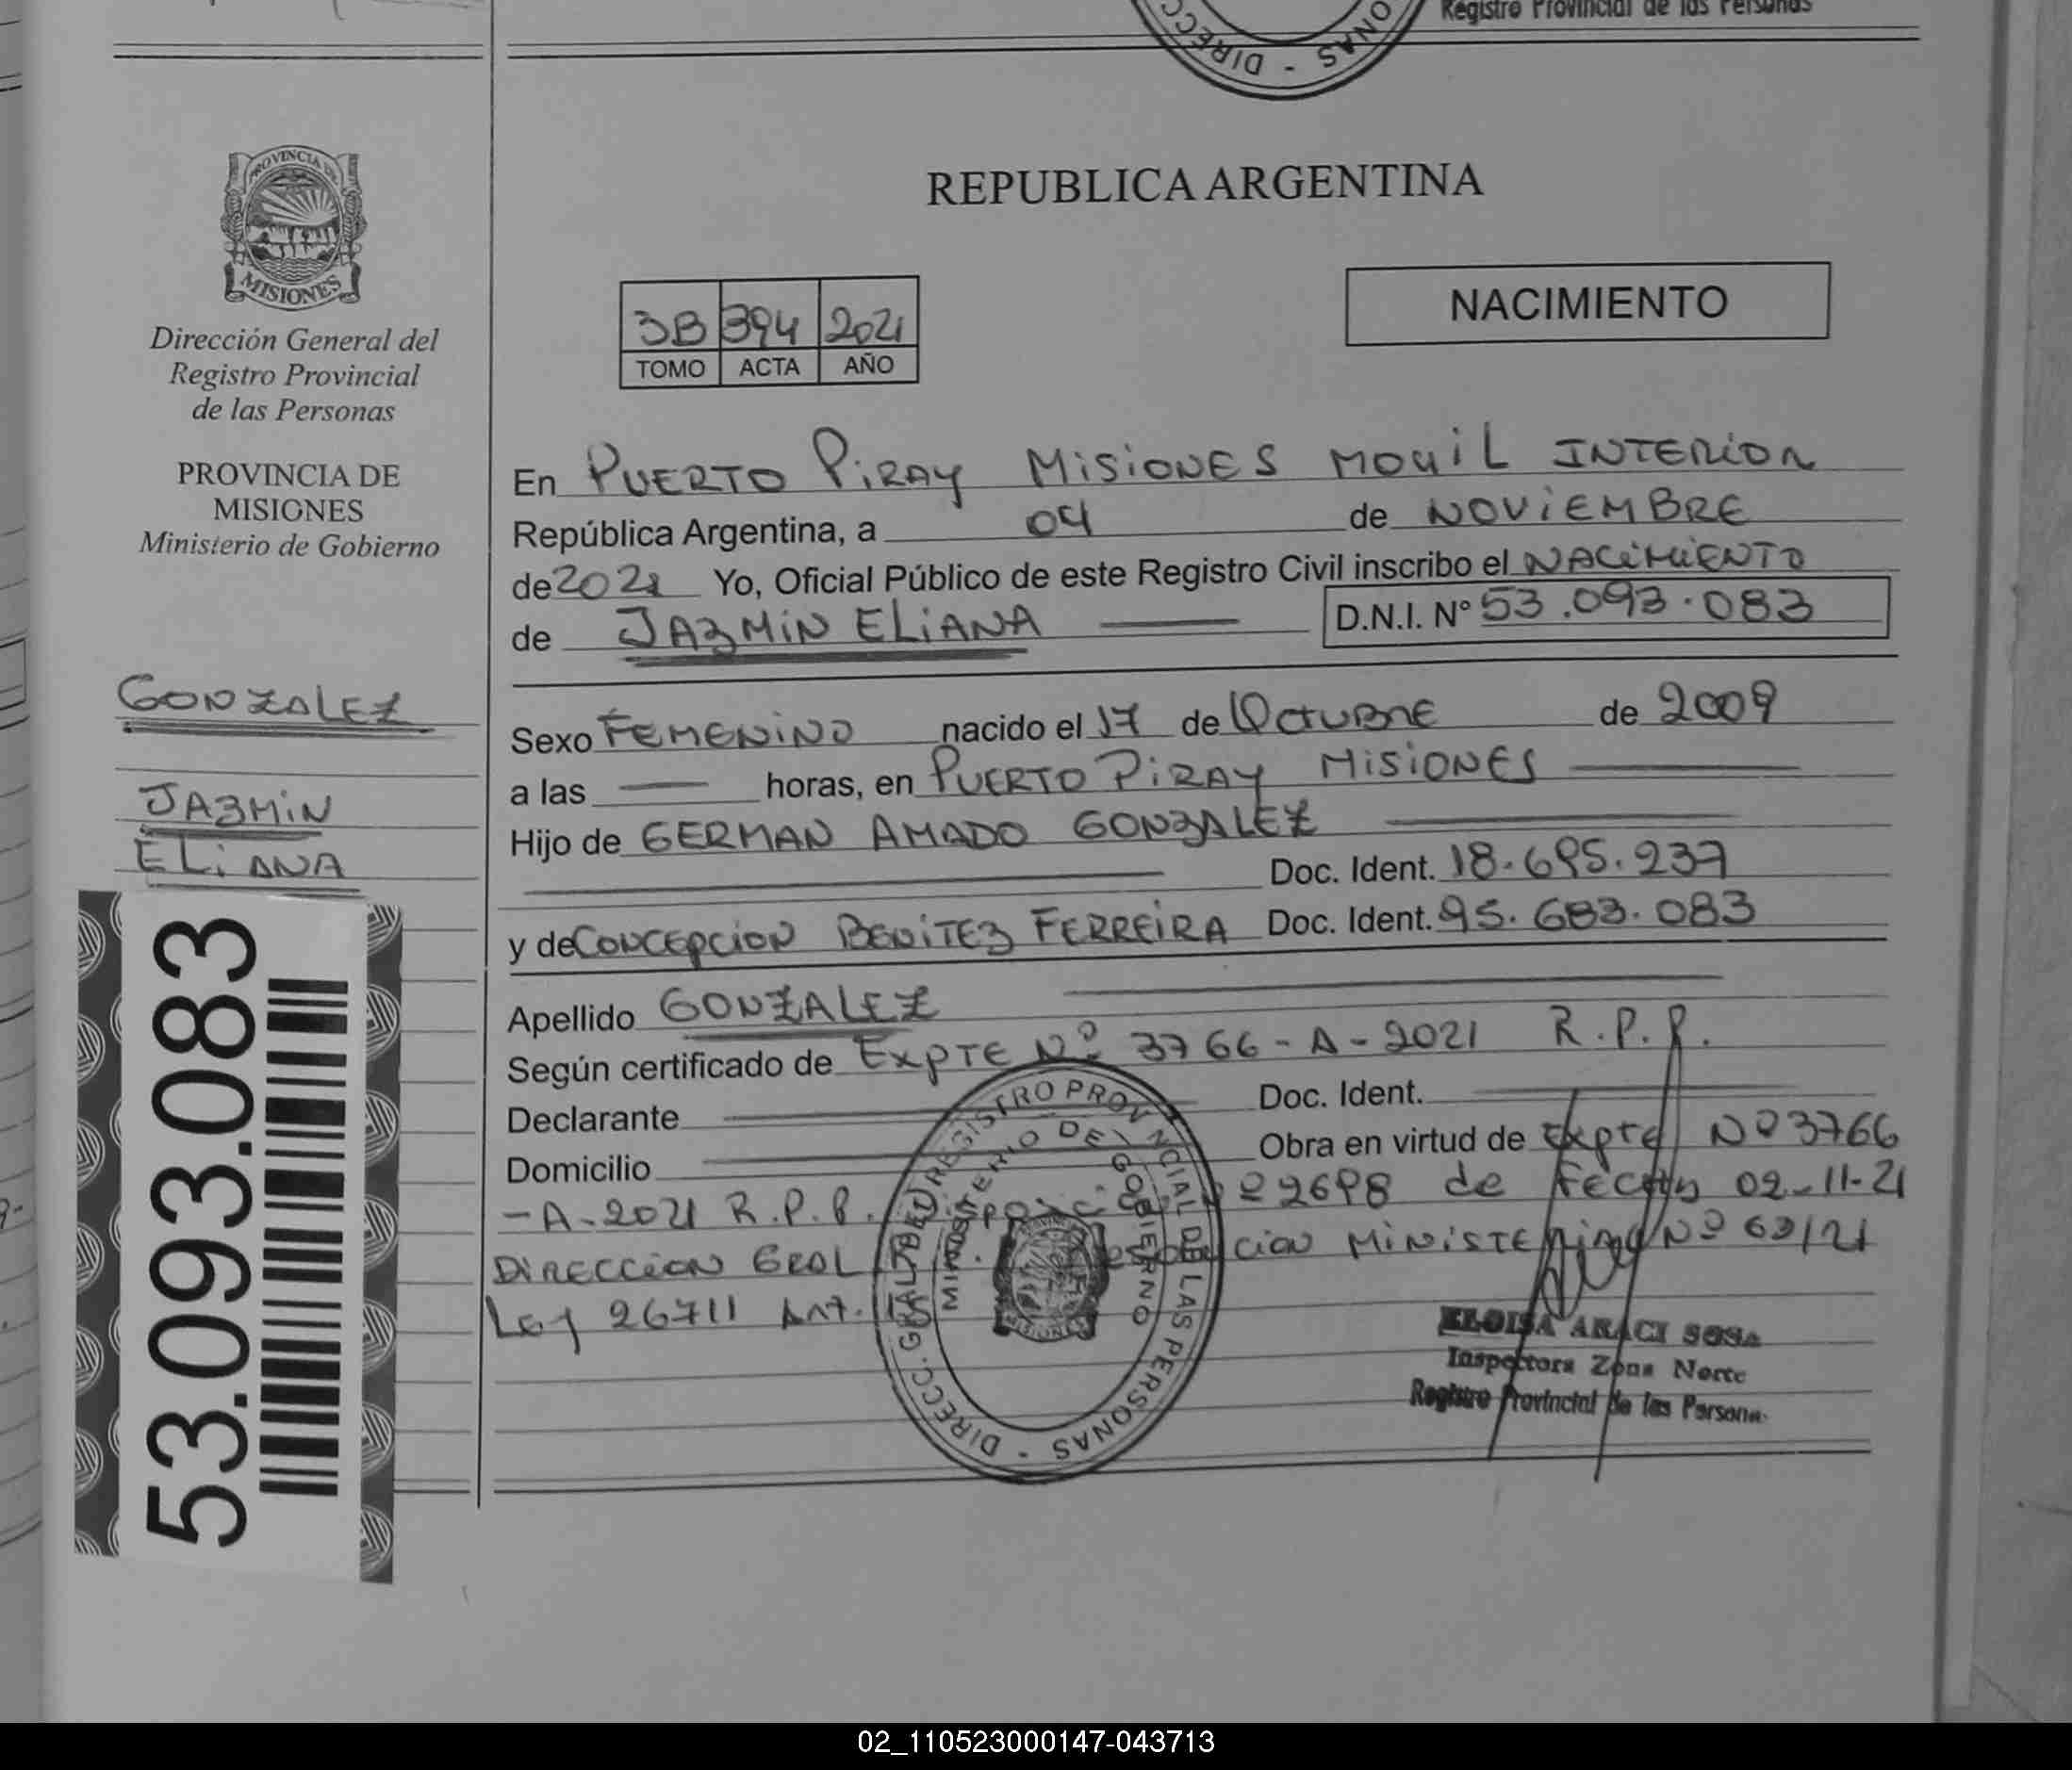 Registro Provincial de las Personas
DIRECC
NAS
REPUBLICA ARGENTINA
PROVINCIA DE
MISIONES
Dirección General del
Registro Provincial
de las Personas
PROVINCIA DE
MISIONES
Ministerio de Gobierno
GONZALEZ
JAZMIN
ELIANA
53.093.083
3B 394 2021
TOMO ACTA AÑO
NACIMIENTO
En PUERTO PIRAY MISIONES MOVIL INTERIOR
República Argentina, a 04 de NOVIEMBRE
de 2021 Yo, Oficial Público de este Registro Civil inscribo el NACIMIENTO
de JAZMIN ELIANA D.N.I. N° 53.093.083
Sexo FEMENINO nacido el 17 de OCTUBRE de 2009
a las horas, en PUERTO PIRAY MISIONES
Hijo de GERMAN AMADO GONZALEZ
Doc. Ident. 18.695.237
y de CONCEPCION BENITEZ FERREIRA Doc. Ident. 95.683.083
Apellido GONZALEZ
Según certificado de EXPTE Nº 3766-A-2021 R.P.P.
Declarante Doc. Ident.
Domicilio Obra en virtud de Expte Nº 3766
-A-2021 R.P.P. Nº 2698 de Fecha 02-11-21
DIRECCION GRAL MINISTERIAL Nº 63/21
Ley 26711 Art.
DIRECC. GRAL DEL REGISTRO PROVINCIAL DE LAS PERSONAS -
MINISTERIO DE GOBIERNO
ELOISA ARACI SOSA
Inspectora Zona Norte
Registro Provincial de las Personas
02_110523000147-043713